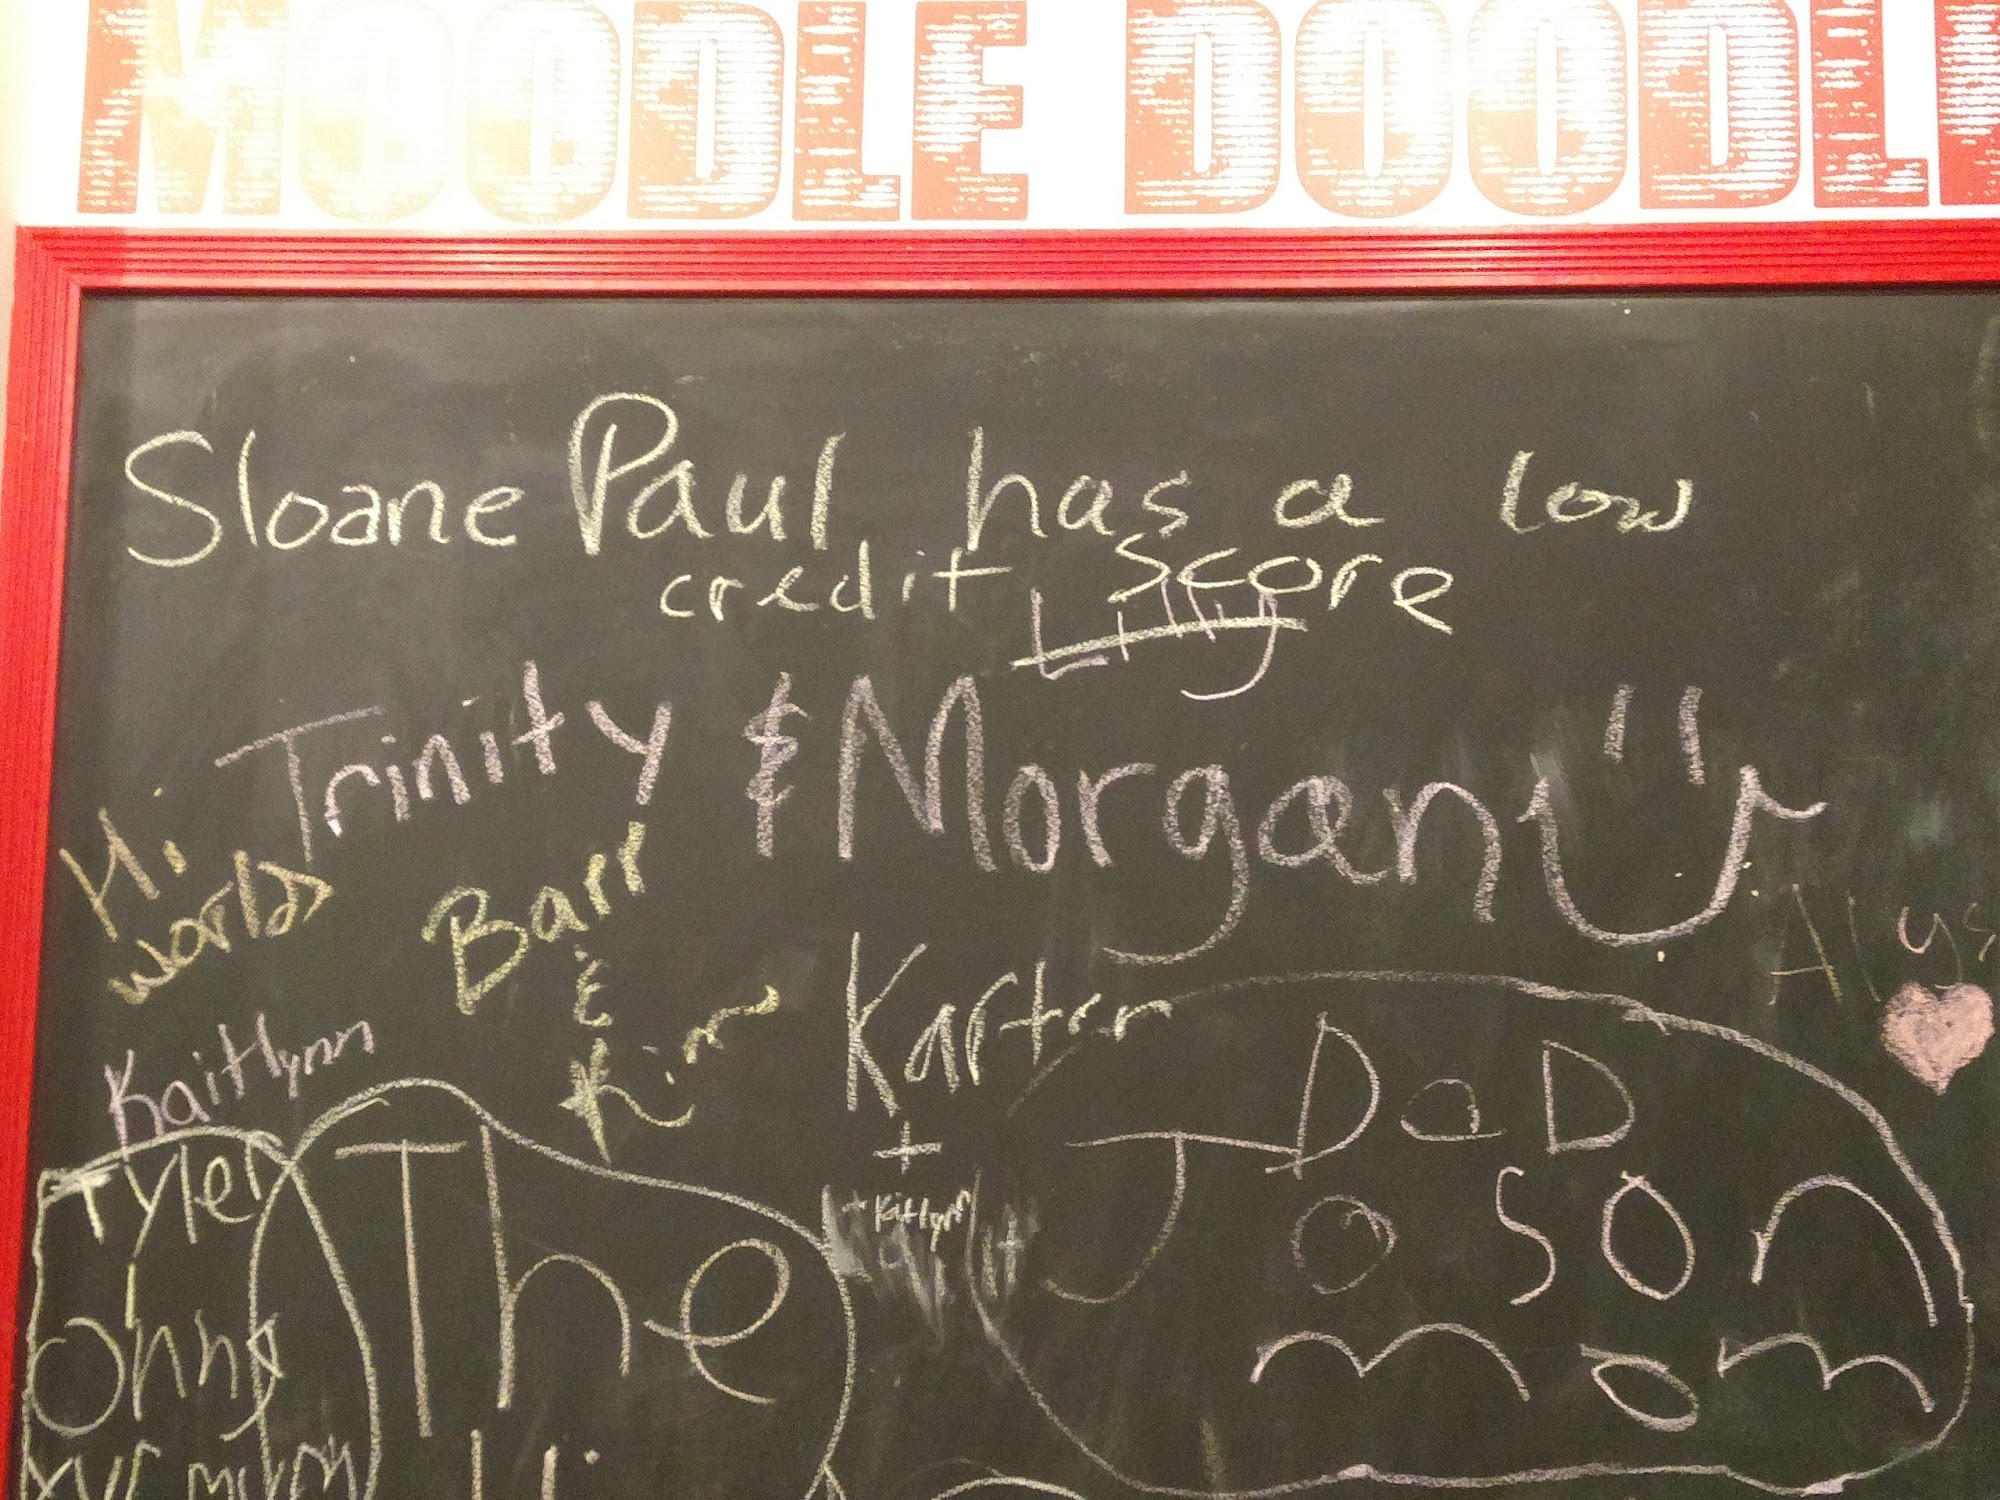 MOODLE DOODL
Sloane Paul has a low
credit score
Lilly
Trinity & Morgan
Hi
world
Barr
&
Kim
Alys
Karter
+
+ Kaitlynn
Kaitlynn
Tyler
The
DaD
Jason
mom
Hi